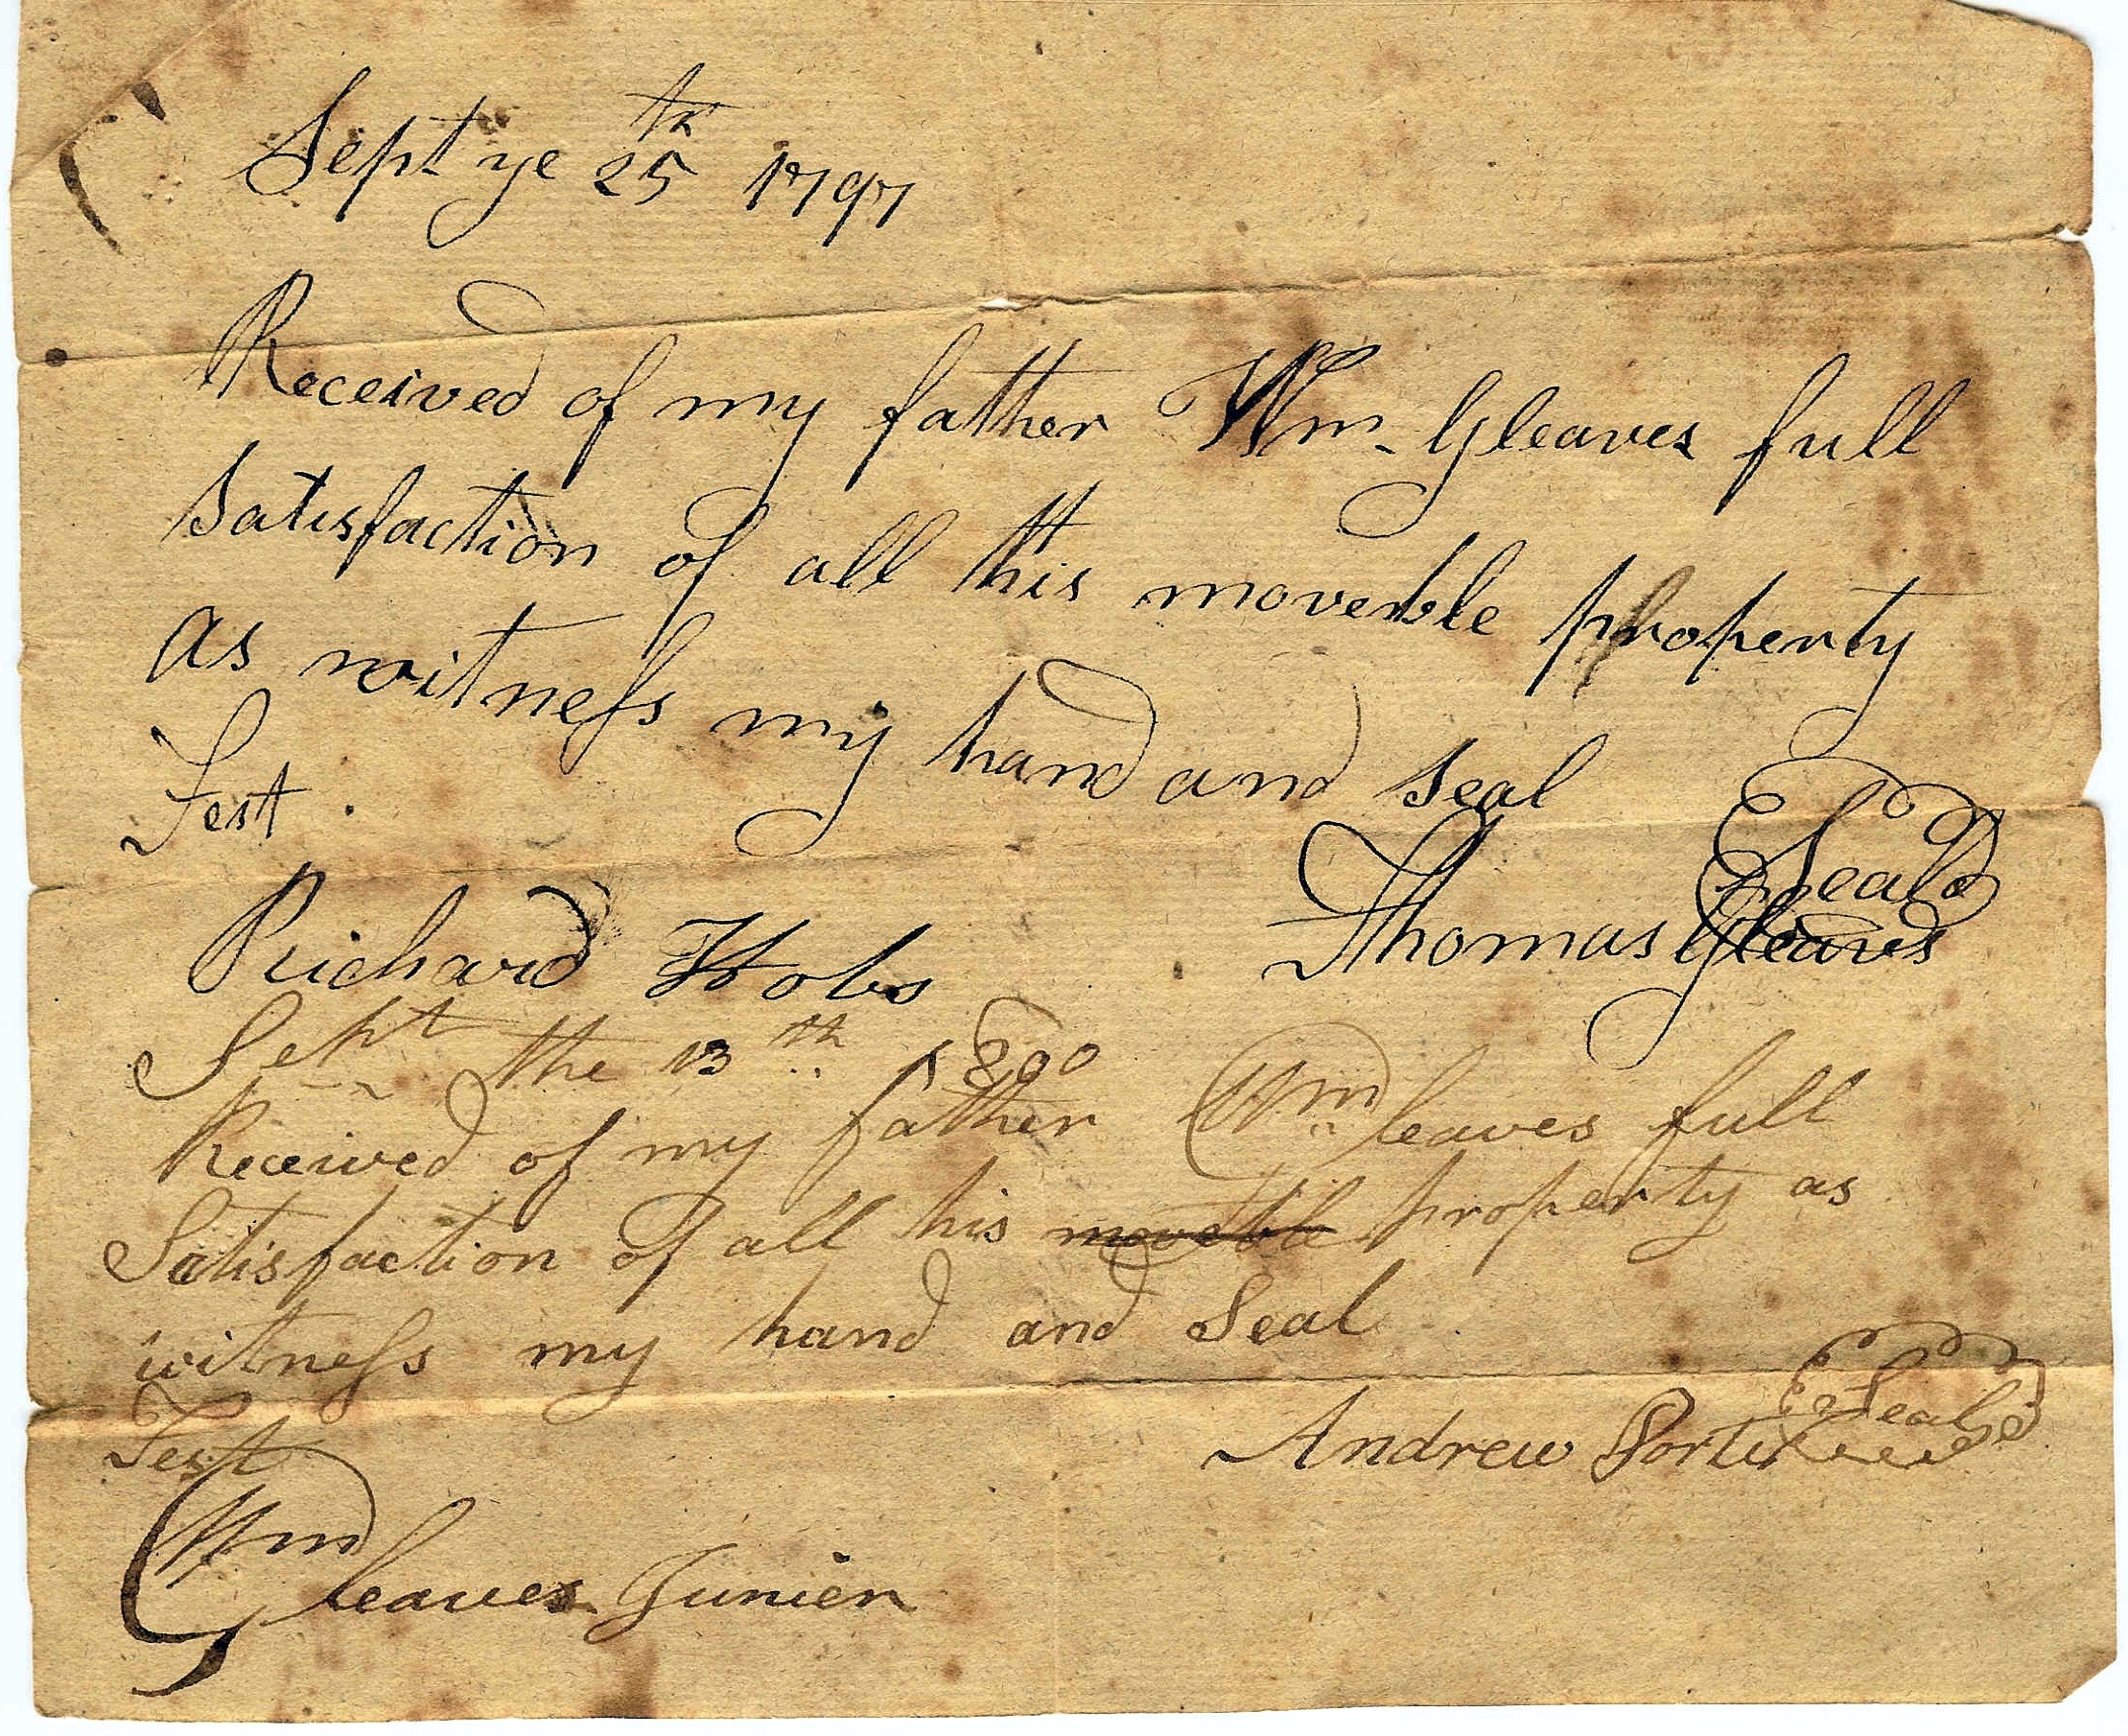 Sept ye 25th 1797
Received of my father Wm Gleaves full
satisfaction of all this moveable property
as witness my hand and seal
Test
Seal
Richard Hobs Thomas Gleaves
Sept the 13th 1800
Received of my father Wm Gleaves full
Satisfaction of all his moveble property as
witness my hand and Seal
Test
Seal
Andrew Porter
Wm
Gleaves Junier